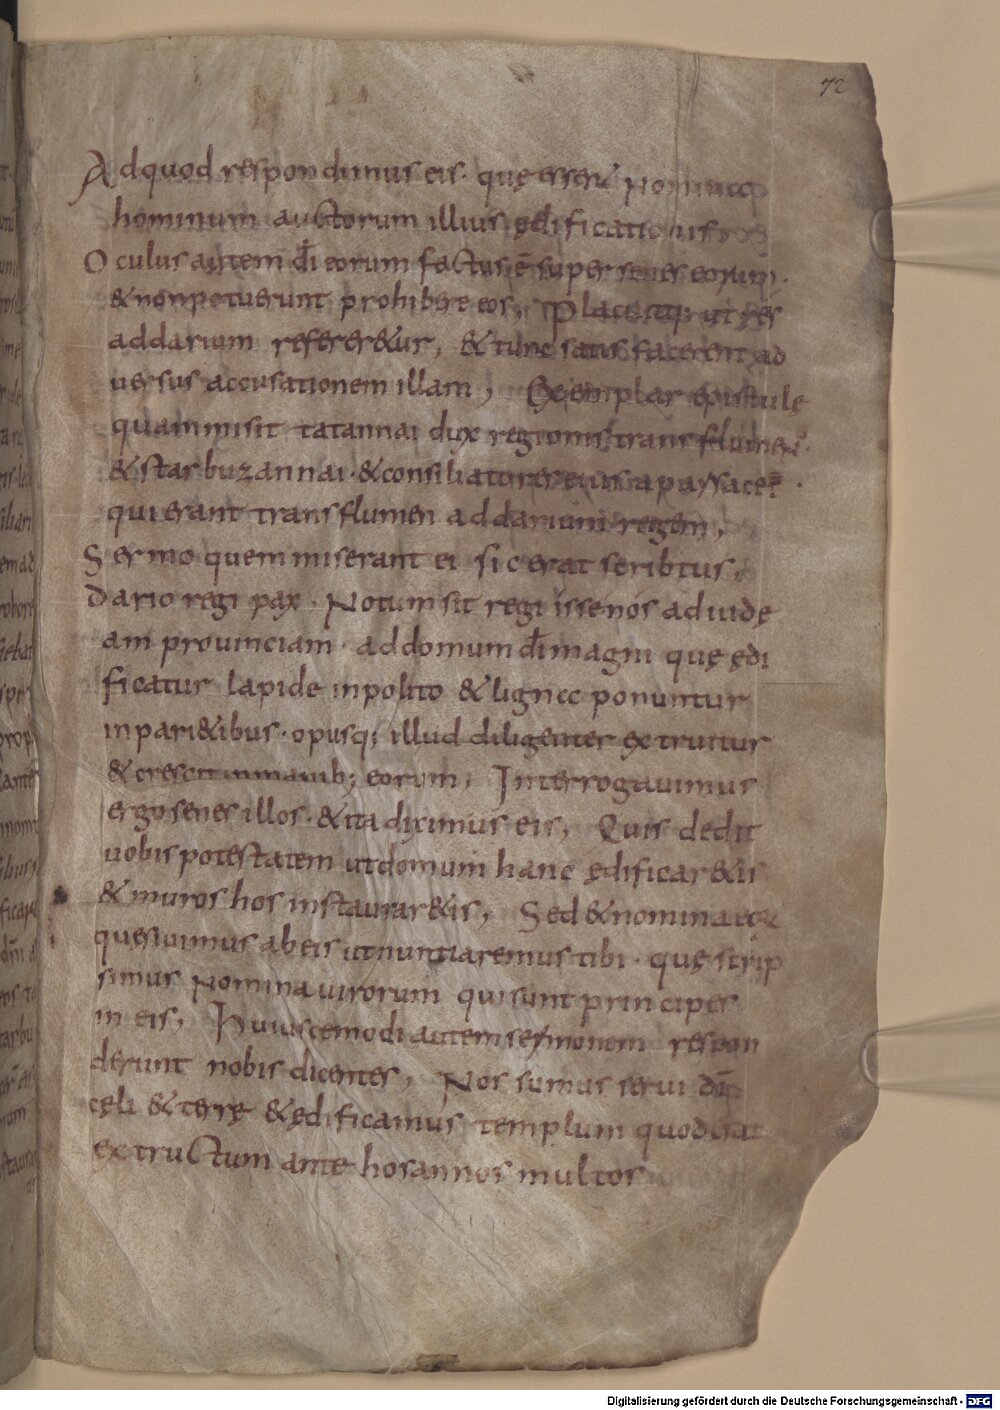 72
Ad quod respondimus eis· quę essent nomina
hominum auctorum illius ędificationis
Oculus autem dī eorum factus ē super senes eorum·
& non potuerunt prohibere eos, Placuitq; ut res
ad darium refer&ur, & tunc satis facerent ad
uersus accusationem illam, Exemplar epistule
quam misit tatannai dux regionis trans flumen·
& starbuzannai· & consiliatores eius arpasacei·
qui erant trans flumen ad darium regem,
Sermo quem miserant ei sic erat scribtus,
Dario regi pax· Notum sit regi isse nos ad iudę
am prouinciam· ad domum dī magni quę ędi
ficatur lapide inpolito & ligna ponuntur
in pari&ibus· opusq; illud diligenter extruitur
& crescit in manib; eorum, Interrogauimus
ergo senes illos· & ita diximus eis, Quis dedit
uobis potestatem ut domum hanc ędificar&is
& muros hos instaurar&is, Sed & nomina eoꝝ
quesiuimus ab eis ut nuntiaremus tibi· quę scrip
simus nomina uirorum qui sunt principes
in eis, Huiuscemodi autem sermonem respon
derunt nobis dicentes, Nos sumus serui dī
cęli & terrę & ędificamus templum quod erat
extructum ante hos annos multos
Digitalisierung gefördert durch die Deutsche Forschungsgemeinschaft - DFG